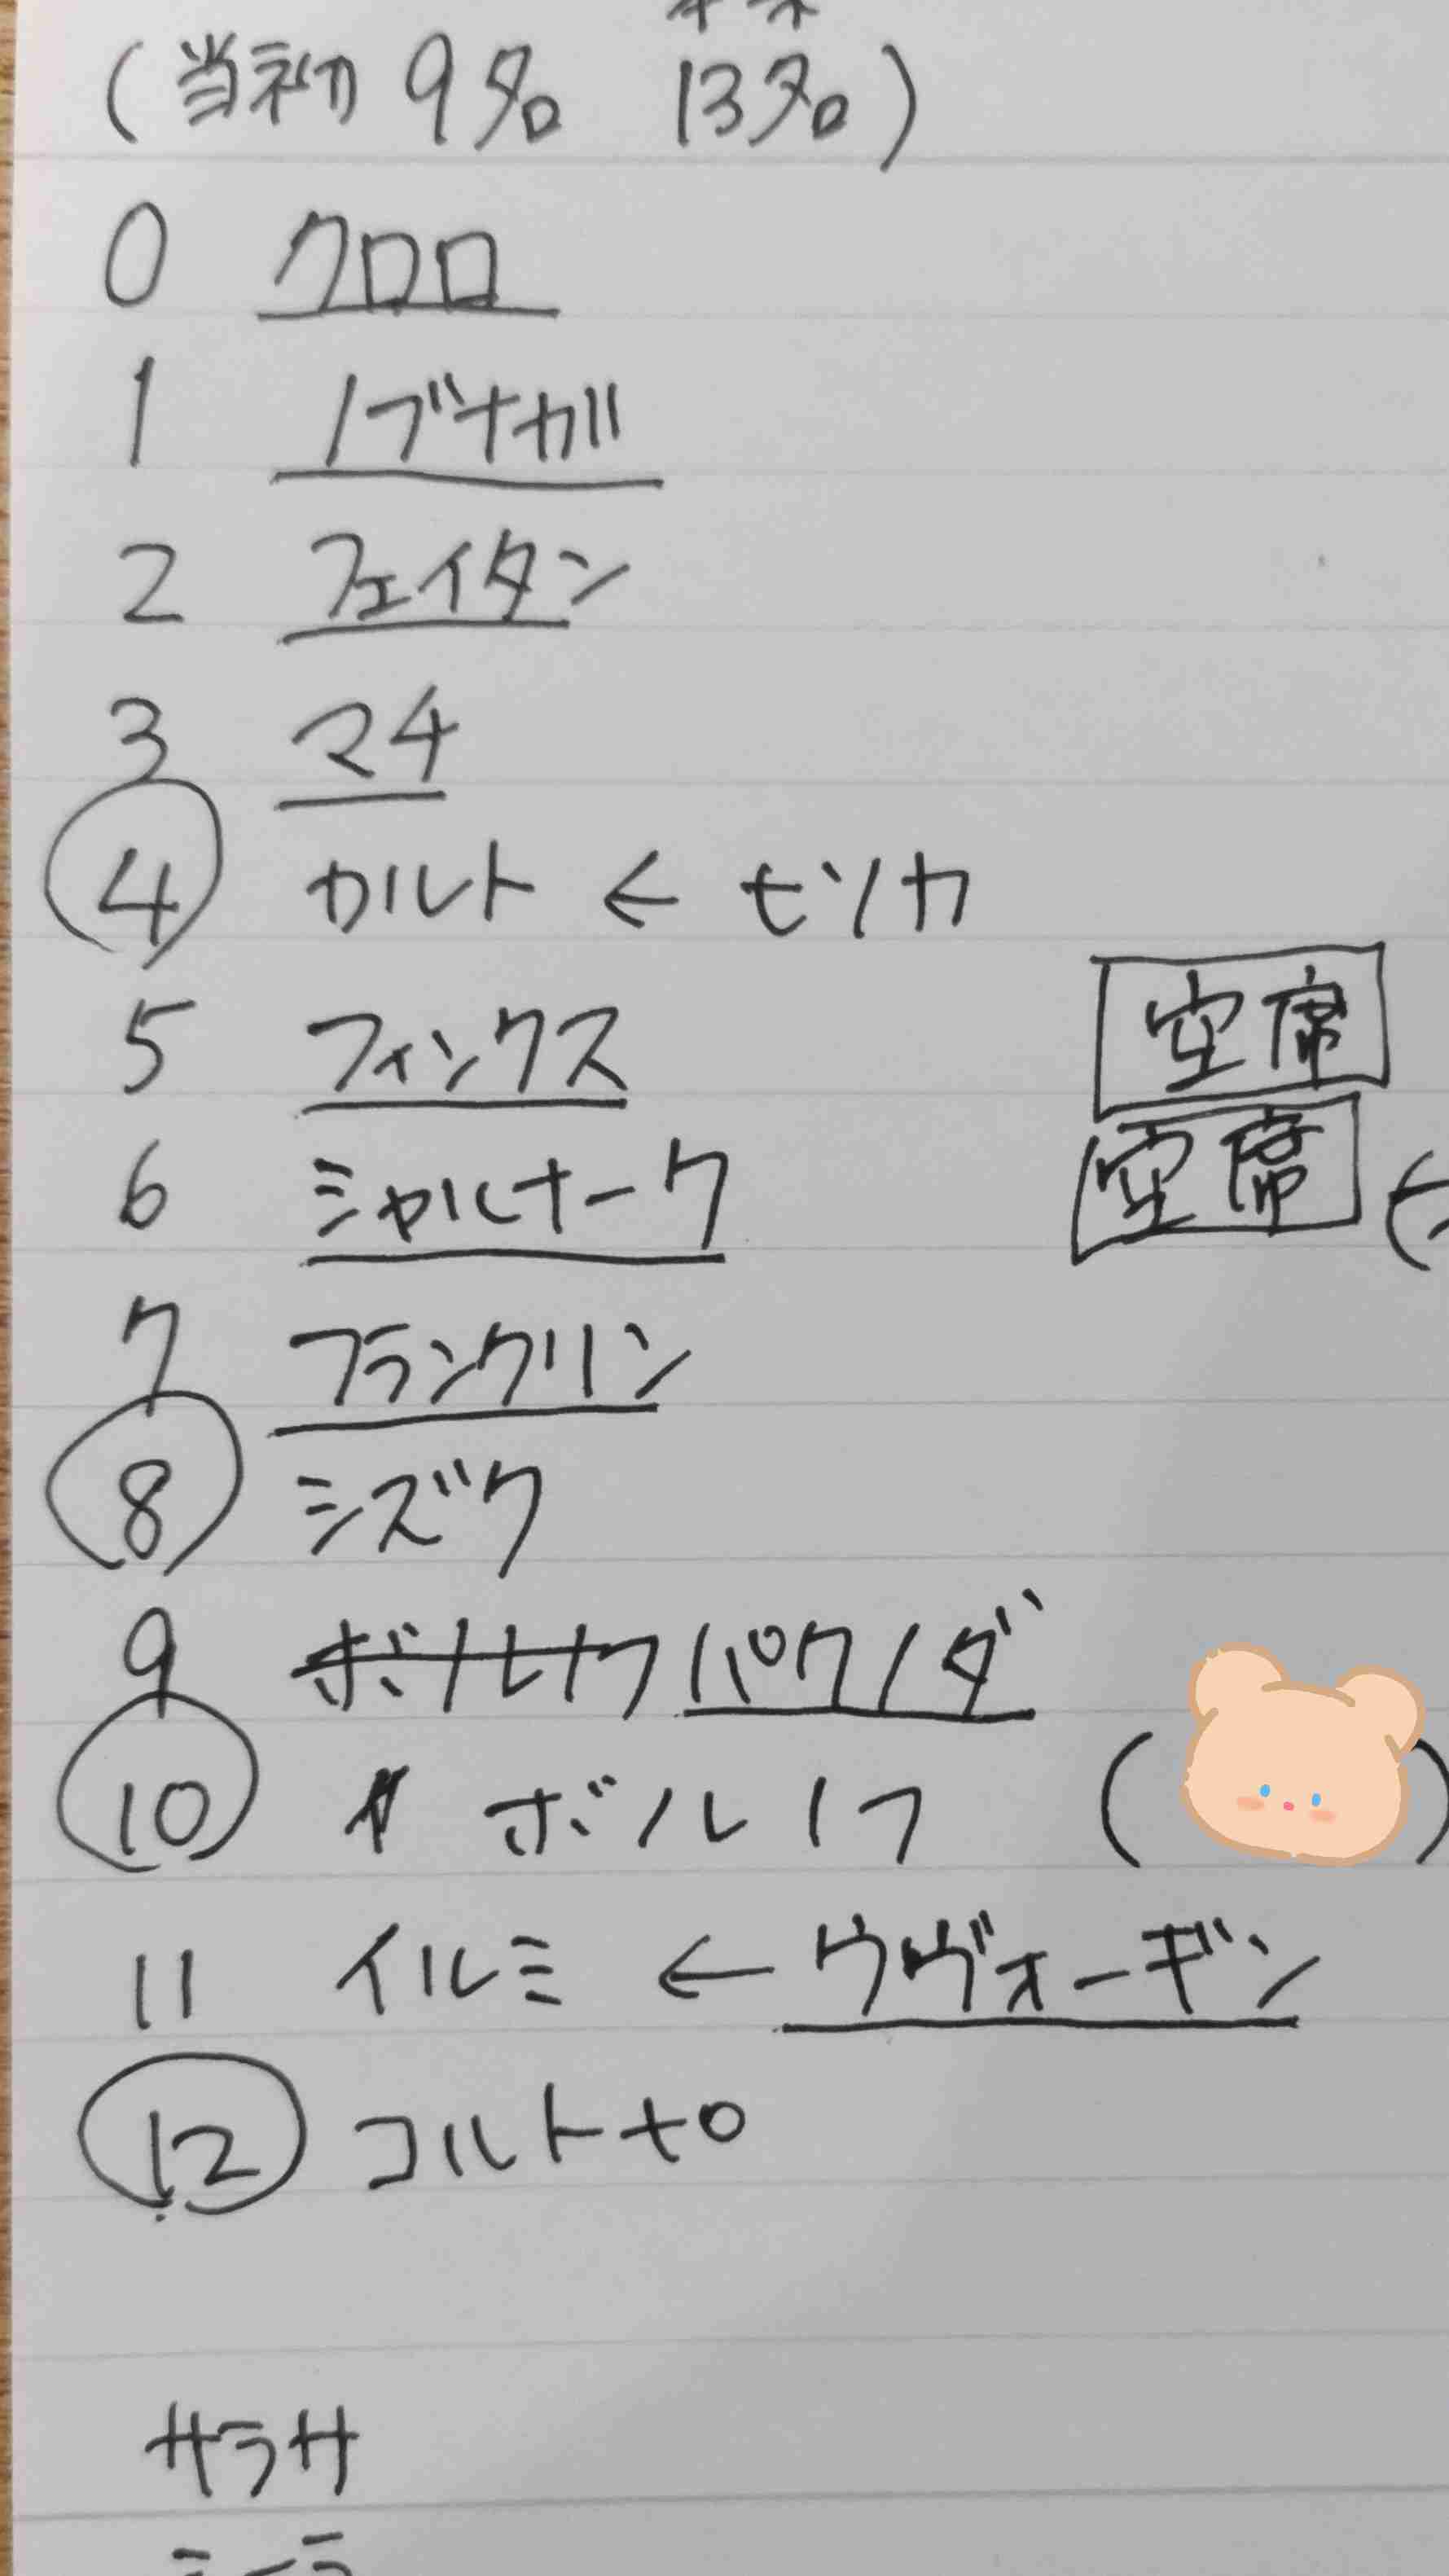 (当初 9名 13名)
0 クロロ
1 ノブナガ
2 フェイタン
3 マチ
4 カルト ← ヒソカ
5 フィンクス
空席
6 シャルナーク
空席 (
7 フランクリン
8 シズク
9 ボノレノフ パクノダ
10 ボノレノフ ( )
11 イルミ ← ウヴォーギン
12 コルトピ
サラサ